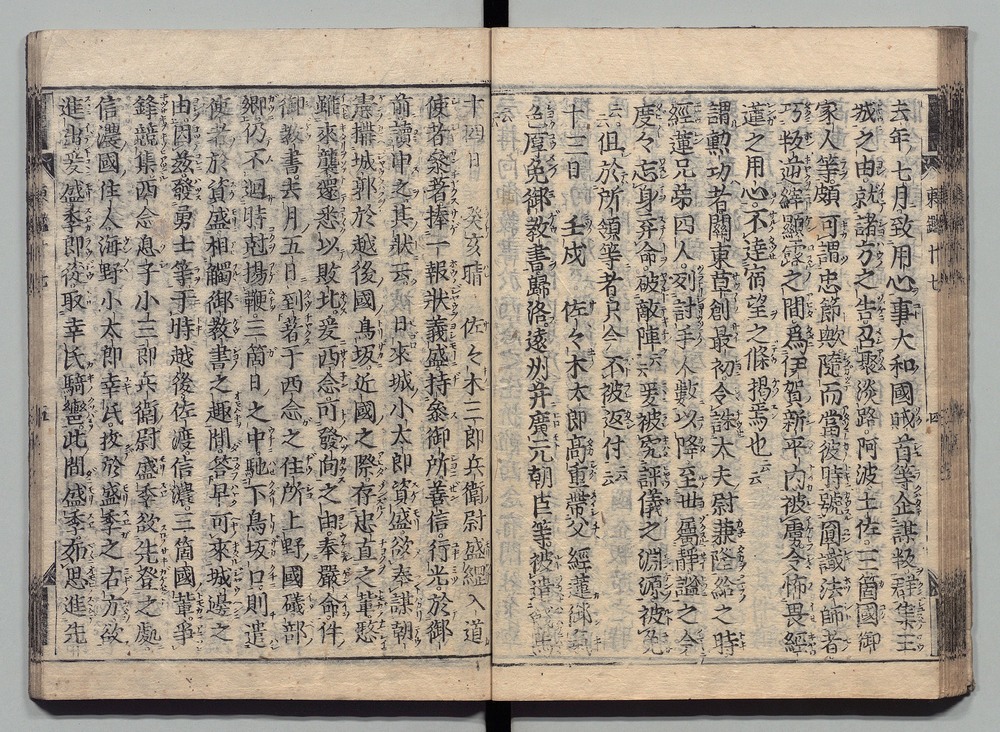 去年七月致用心事大和國賊首等企謀叛群集王
城之由就諸方之告召聚淡路阿波土佐三箇國御
家人等頗可謂忠節歟隨而當彼時號圓識法師者
巧叛逆縡顯露之間爲伊賀新平内被虜令怖畏經
蓮之用心不達宿望之條揭焉也云云
謂勲功者關東草創最初令誅大夫尉兼隆給之時
經蓮兄弟四人列討手人數以降至世屬靜謐之今
度々忘身弃命破敵陣云云爰被究評儀之淵源被免
云云但於所領等者只今不被返付云云
十三日 壬戌 佐々木太郎高重帶父經蓮
色厚免御教書歸洛遠州并廣元朝臣等被遣
十四日 癸亥晴 佐々木三郎兵衛尉盛綱入道
使者參著捧一報狀義盛持參御所善信行光於御
前讀申之其狀云 日來城小太郎資盛欲奉謀朝
憲搆城郭於越後國鳥坂近國之際存忠直之輩憖
雖來襲還悉以敗北爰西念可發向之由奉嚴命件
御教書去月五日到著于西念之住所上野國礒部
郷仍不迴時尅揚鞭三箇日之中馳下鳥坂口則遣
使者於資盛相觸御教書之趣間答早可來城邊之
由因茲發勇士等于時越後佐渡信濃三箇國輩爭
鋒競集西念息子小三郎兵衛尉盛季欲先登之處
信濃國住人海野小太郎幸氏拔於盛季之右方欲
進出爰盛季郎從取幸氏騎轡此間盛季如思進先
東鑑十七
四
東鑑十七
五